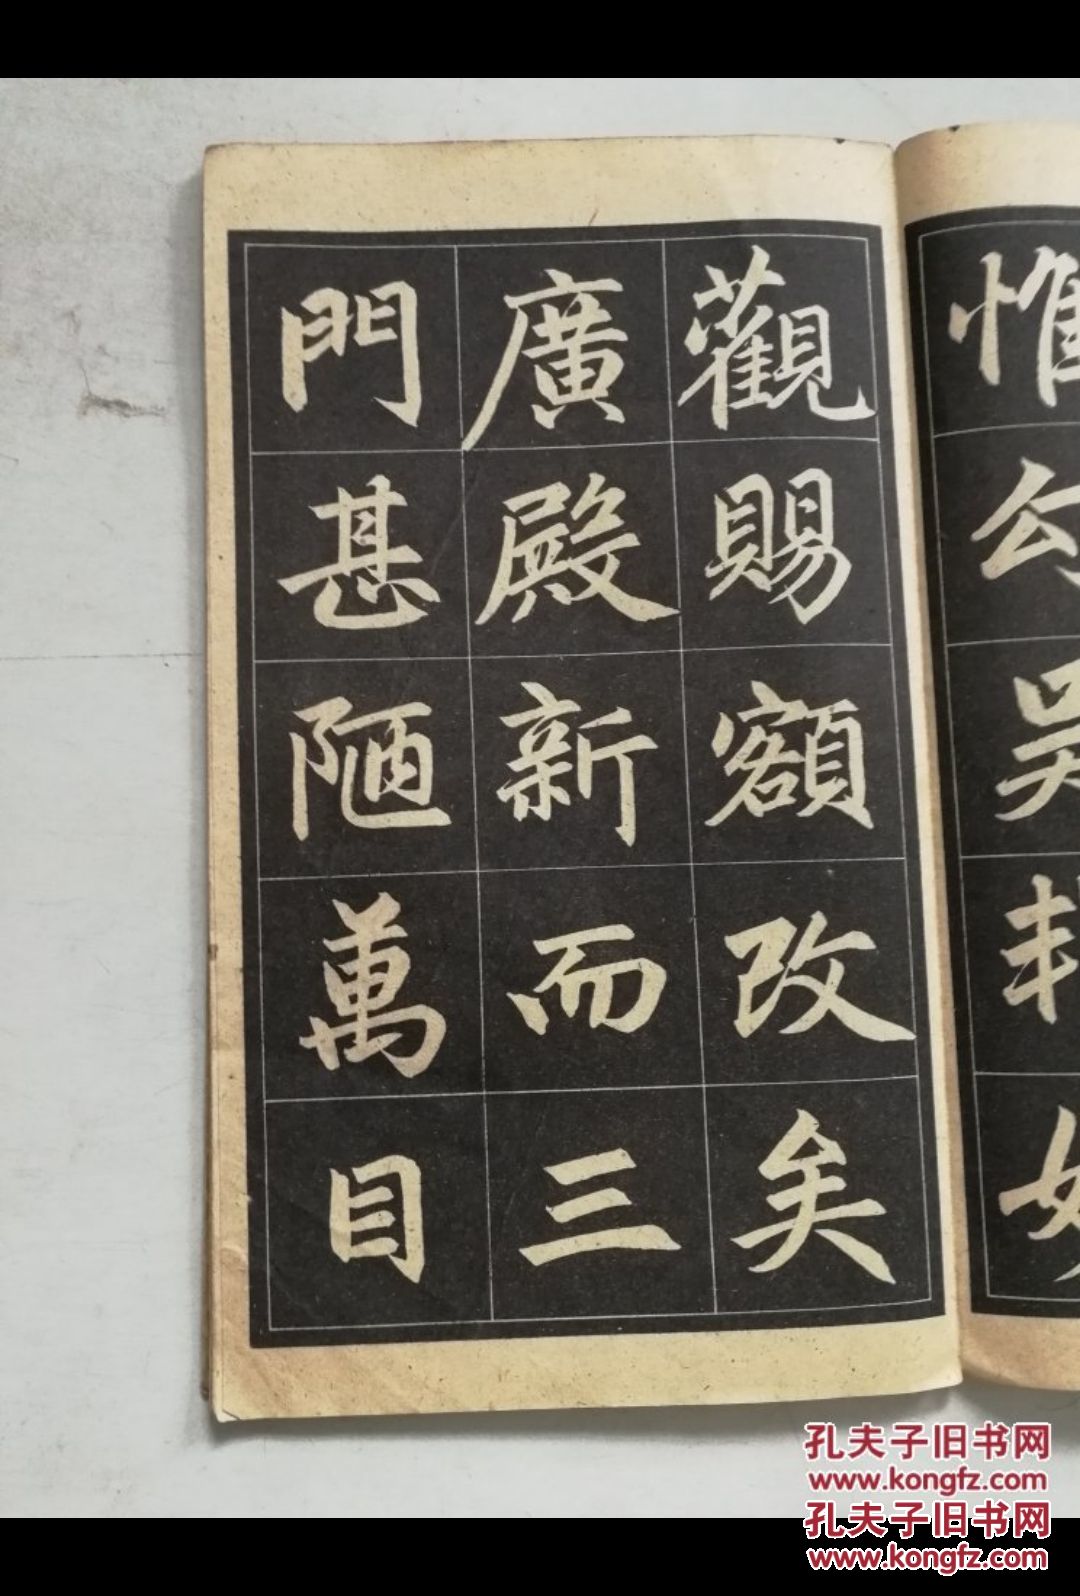 惟
勾
吴
觀賜額改矣
廣殿新而三
門甚陋萬目
孔夫子旧书网
www.kongfz.com
孔夫子旧书网
www.kongfz.com